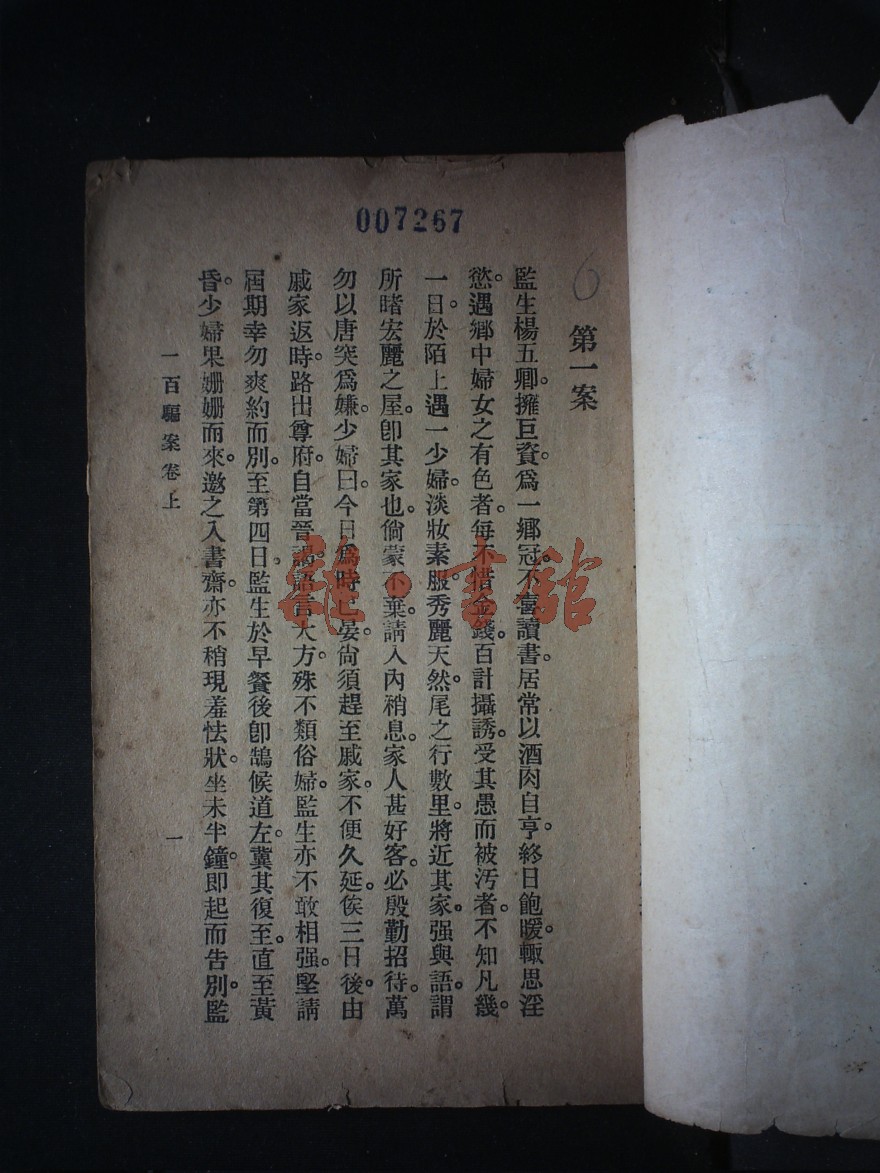 007267
6
第一案
監生楊五卿。擁巨資。爲一鄉冠。不喜讀書。居常以酒肉自亨。終日飽暖。輙思淫
慾。遇鄉中婦女之有色者。每不惜金錢。百計攝誘。受其愚而被汚者。不知凡幾。
一日。於陌上遇一少婦。淡妝素服。秀麗天然。尾之行數里。將近其家。强與語。謂
所睹宏麗之屋。卽其家也。倘蒙不棄。請入內稍息。家人甚好客。必殷勤招待。萬
勿以唐突爲嫌。少婦曰。今日爲時已晏。尙須趕至戚家。不便久延。俟三日後。由
戚家返時。路出尊府。自當晉謁。語言大方。殊不類俗婦。監生亦不敢相强。堅請
屆期幸勿爽約而別。至第四日。監生於早餐後卽鵠候道左。冀其復至。直至黃
昏。少婦果姍姍而來。邀之入書齋。亦不稍現羞怯狀。坐未半鐘。卽起而告別。監
一百騙案卷上
一
雜·書館